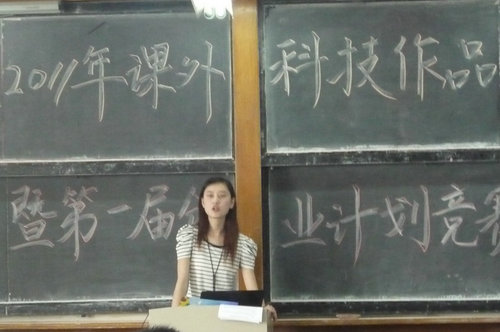 2011年课外科技作品
暨第一届 业计划竞赛